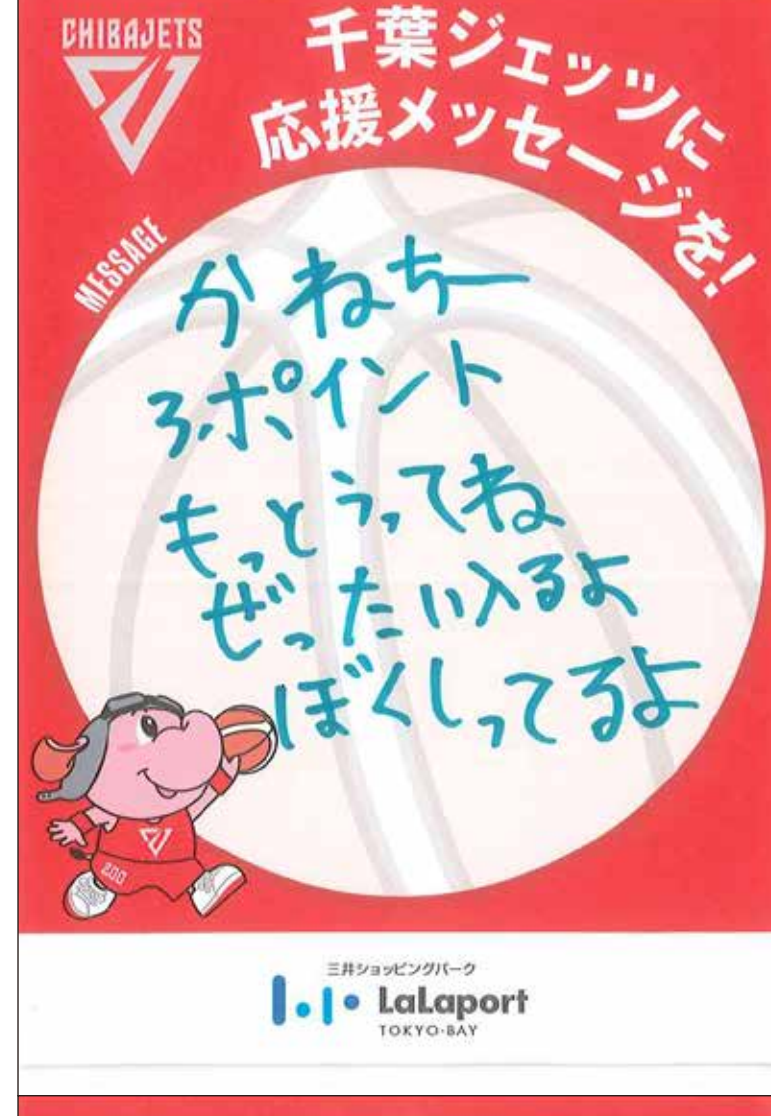 CHIBAJETS
千葉ジェッツに
応援メッセージを!
MESSAGE
かねちー
3ポイント
もっとうってね
ぜったい入るよ
ぼくしってるよ
200
三井ショッピングパーク
LaLaport
TOKYO-BAY